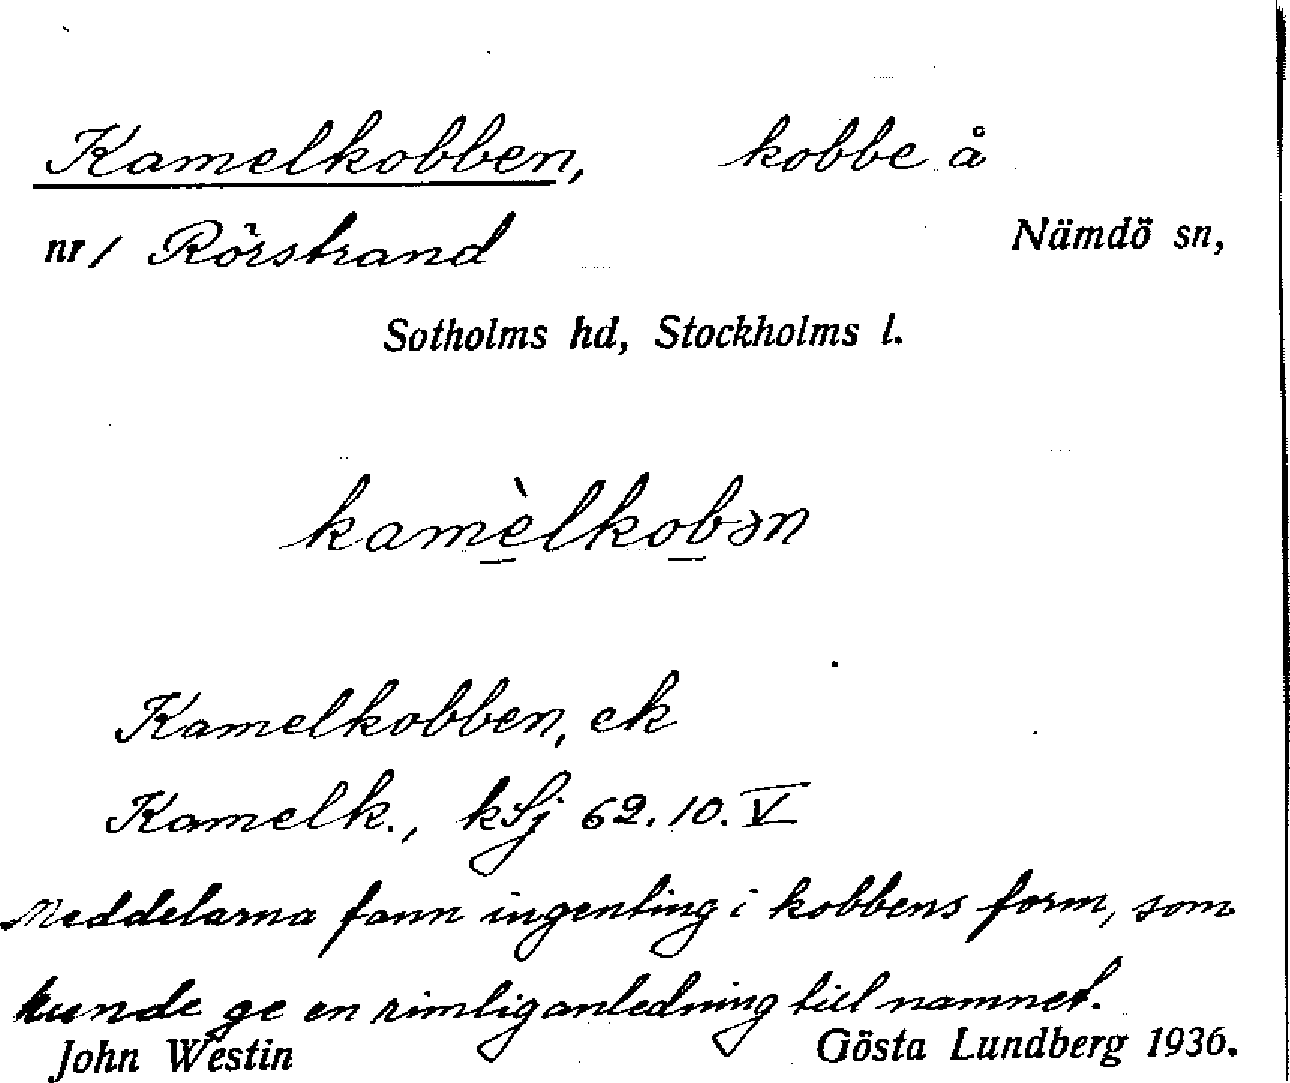 Kamelkobben, kobbe å
nr 1 Rörstrand Nämdö sn,
Sotholms hd, Stockholms l.
kamèlkobən
Kamelkobben, ek
Kamelk., kSj 62.10.V
Meddelarna fann ingenting i kobbens form, som
kunde ge en rimlig anledning till namnet.
John Westin Gösta Lundberg 1936.